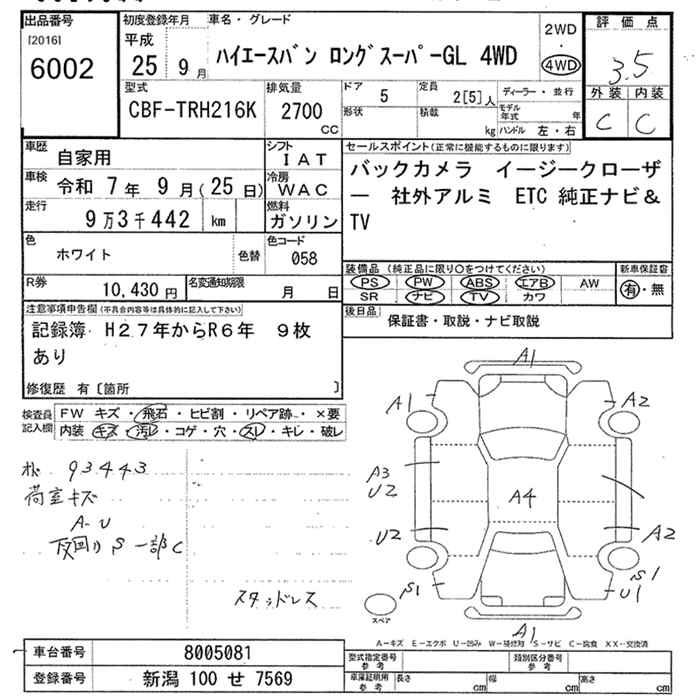 出品番号
[2016]
6002
初度登録年月
平成
25 9月
車名・グレード
ハイエースバン ロングスーパーGL 4WD
2WD
・
4WD
評価点
3.5
外装 内装
C C
型式
CBF-TRH216K
排気量
2700
cc
ドア
5
定員
2[5]人
形状
積載
kg
ディーラー・並行
モデル年式 年
ハンドル 左・右
車歴
自家用
シフト
IAT
車検
令和 7年 9月(25日)
冷房
WAC
走行
9万3千442 km
燃料
ガソリン
色
ホワイト
色替
色コード
058
R券
10,430円
名変通知期限
月 日
セールスポイント(正常に機能するものに限ります)
バックカメラ イージークローザ
ー 社外アルミ ETC 純正ナビ&
TV
装備品(純正品に限り○をつけてください)
PS PW ABS エアB AW
SR ナビ TV カワ
新車保証書
有・無
後日品
保証書・取説・ナビ取説
注意事項申告欄(不具合内容等は具体的に記入して下さい)
記録簿 H27年からR6年 9枚
あり
修復歴 有〔箇所 〕
検査員
記入欄
FW キズ・飛石・ヒビ割・リペア跡・×要
内装 キズ・汚レ・コゲ・穴・スレ・キレ・破レ
93443
荷室キズ
A-U
下回りS一部C
スタッドレス
A1
A1
A2
A3
U2
A4
U2
A2
S1
S1
U1
A1
スペア
A-キズ E-エクボ U-凹み W-補修跡 S-サビ C-腐食 XX-交換済
車台番号
8005081
登録番号
新潟 100 せ 7569
型式指定番号
参考
類別区分番号
参考
車庫証明用
参考
長さ cm
幅 cm
高さ cm